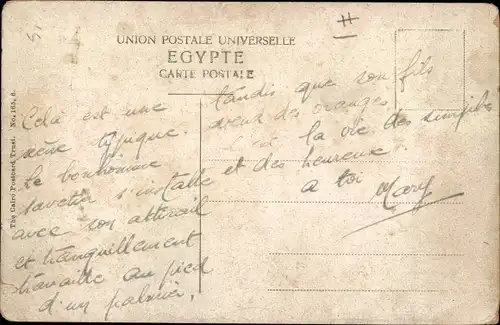 51
#
UNION POSTALE UNIVERSELLE
EGYPTE
CARTE POSTALE
The Cairo Postcard Trust. No. 105, 6.
Celà est une
scène typique.
Le bonhomme
savetier s'installe
avec son attirail
et tranquillement
travaille au pied
d'un palmier,
tandis que son fils
vend des oranges.
C'est la vie des simples
et des heureux.
a toi Mary